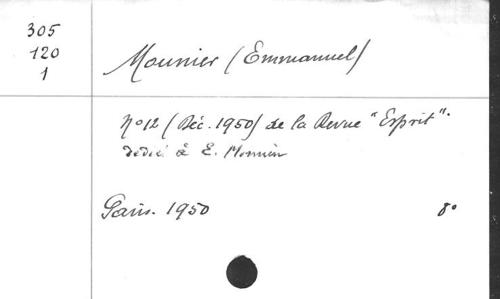 305
120
1
Mounier (Emmanuel)
N° 12 (Déc. 1950) de la Revue "Esprit".
dédié à E. Mounier
Paris. 1950 8°